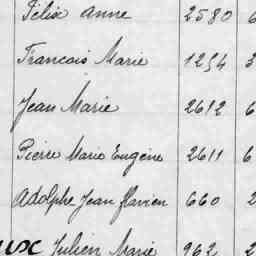 Félix Anne 2580 6
François Marie 1254 3
Jean Marie 2612 6
Pierre Marie Eugène 2611 6
Adolphe Jean flavien 660 2
ux Julien Marie 962 2